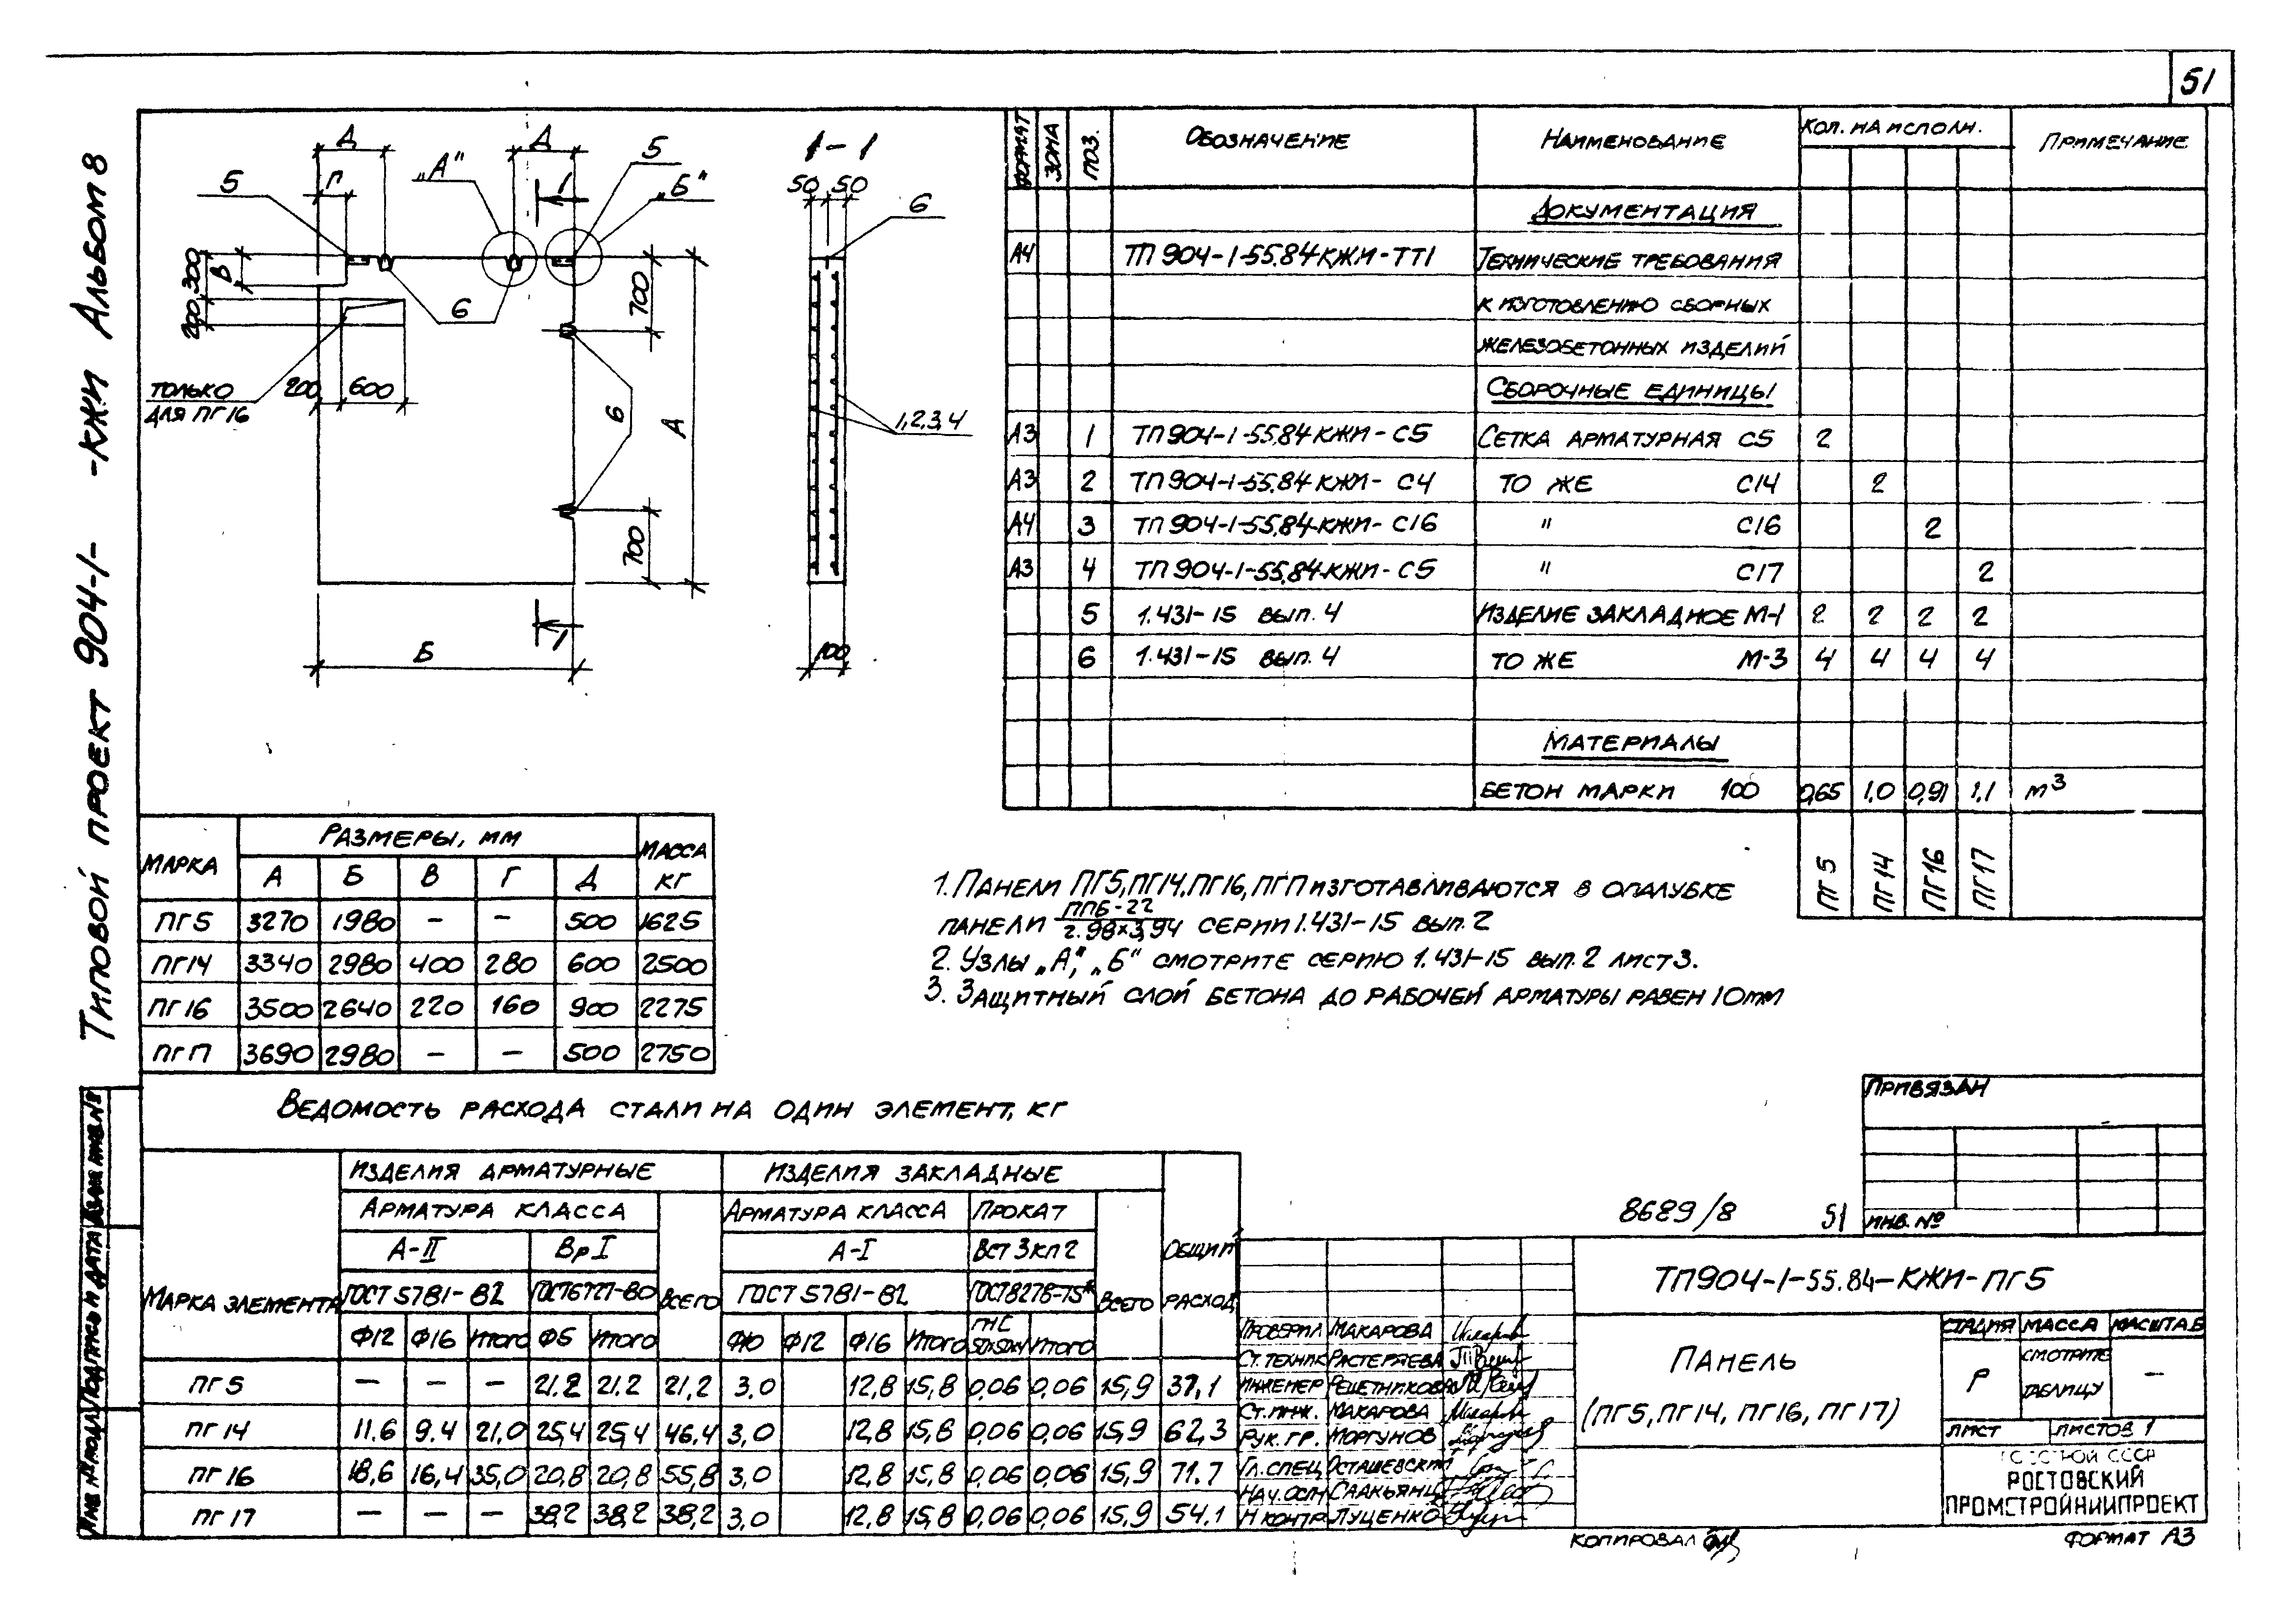 51
Типовой проект 904-1- -КЖИ Альбом 8
Д Д 5
5 Г „А“ 1 „Б“
300 В 200
6 700
только для ПГ16
200 600
6 А
700
1
Б
1-1
50 50
6
1,2,3,4
100
Формат Зона Поз. Обозначение Наименование Кол. на исполн. Примечание
Документация
А4 ТП 904-1-55.84 КЖИ-ТТ1 Технические требования
к изготовлению сборных
железобетонных изделий
Сборочные единицы
А3 1 ТП904-1-55.84 КЖИ-С5 Сетка арматурная С5 2
А3 2 ТП904-1-55.84 КЖИ- С4 То же С14 2
А4 3 ТП904-1-55.84-КЖИ- С16 " С16 2
А3 4 ТП904-1-55.84-КЖИ- С5 " С17 2
5 1.431-15 вып. 4 Изделие закладное М-1 2 2 2 2
6 1.431-15 вып. 4 То же М-3 4 4 4 4
Материалы
Бетон марки 100 0,65 1,0 0,91 1,1 м3
ПГ5 ПГ14 ПГ16 ПГ17
Марка Размеры, мм Масса кг
А Б В Г Д
ПГ5 3270 1980 — — 500 1625
ПГ14 3340 2980 400 280 600 2500
ПГ16 3500 2640 220 160 900 2275
ПГ17 3690 2980 — — 500 2750
1. Панели ПГ5, ПГ14, ПГ16, ПГ17 изготавливаются в опалубке
панели ПГ6-22/2.98×3,94 серии 1.431-15 вып. 2
2. Узлы „А“, „Б“ смотрите серию 1.431-15 вып. 2 лист 3.
3. Защитный слой бетона до рабочей арматуры равен 10мм
Ведомость расхода стали на один элемент, кг
Марка элемента Изделия арматурные Изделия закладные Общий расход
Арматура класса Всего Арматура класса Прокат Всего
А-II ВрI А-I ВСт3кп2
ГОСТ 5781-82 ГОСТ6727-80 ГОСТ 5781-82 ГОСТ8278-75*
Ф12 Ф16 Итого Ф5 Итого Ф10 Ф12 Ф16 Итого Итого
ПГ5 — — — 21.2 21,2 21,2 3,0 12,8 15,8 0,06 0,06 15,9 37,1
ПГ14 11.6 9.4 21,0 25,4 25,4 46,4 3,0 12,8 15,8 0,06 0,06 15,9 62,3
ПГ16 18,6 16,4 35,0 20,8 20,8 55,8 3,0 12,8 15,8 0,06 0,06 15,9 71.7
ПГ17 — — — 38,2 38,2 38,2 3,0 12,8 15,8 0,06 0,06 15,9 54.1
Привязан
Инв. №
8689/8 51
ТП904-1-55.84-КЖИ-ПГ5
Проверил Макарова
Ст. техник Растеряева
Инженер Решетникова
Ст. инж. Макарова
Рук. гр. Моргунов
Гл. спец Осташевский
Нач. осп Саакьянц
Н контр Луценко
Панель
(ПГ5, ПГ14, ПГ16, ПГ17)
Стадия Масса Масштаб
Р Смотрите таблицу —
Лист Листов 1
Госстрой СССР
РОСТОВСКИЙ
ПРОМСТРОЙНИИПРОЕКТ
Копировал
Формат А3
Инв № подл. Подпись и дата Взам инв. №